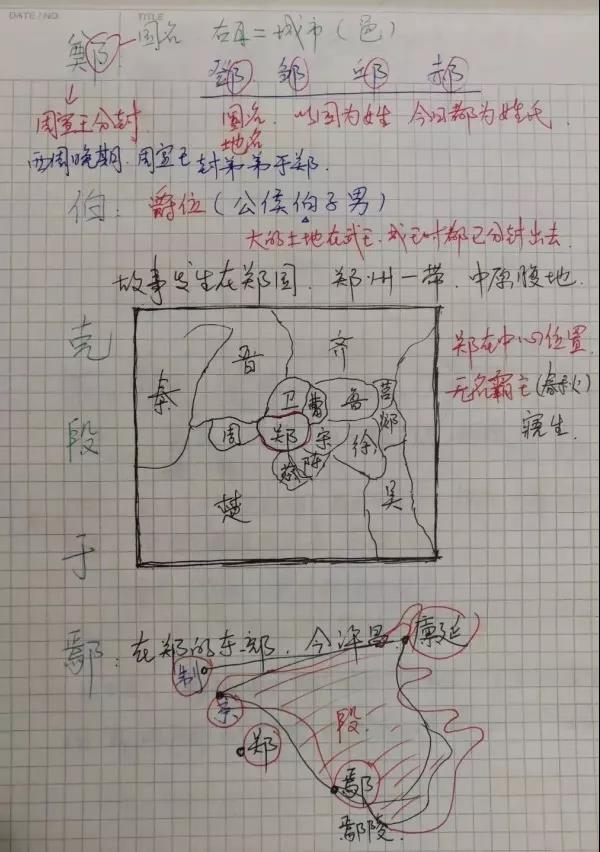 DATE/NO. TITLE
鄭—国名 右耳=城市(邑)
鄧 邹 邱 郝
周宣王分封 国名 以国为姓 今日都为姓氏.
地名
西周晚期.周宣王封弟弟于郑.
伯: 爵位(公侯伯子男)
大的土地在武王.成王时都已分封出去.
故事发生在郑国.郑州一带.中原腹地.
克
段
于
秦 晋 齐
卫 曹 鲁 莒
周 郑 宋 徐 郯
蔡 陈
楚 吴
郑在中心位置
无名霸主(春秋)
寤生.
鄢: 在郑的东部. 今 廪延
制
京
郑 段
鄢
鄢陵.